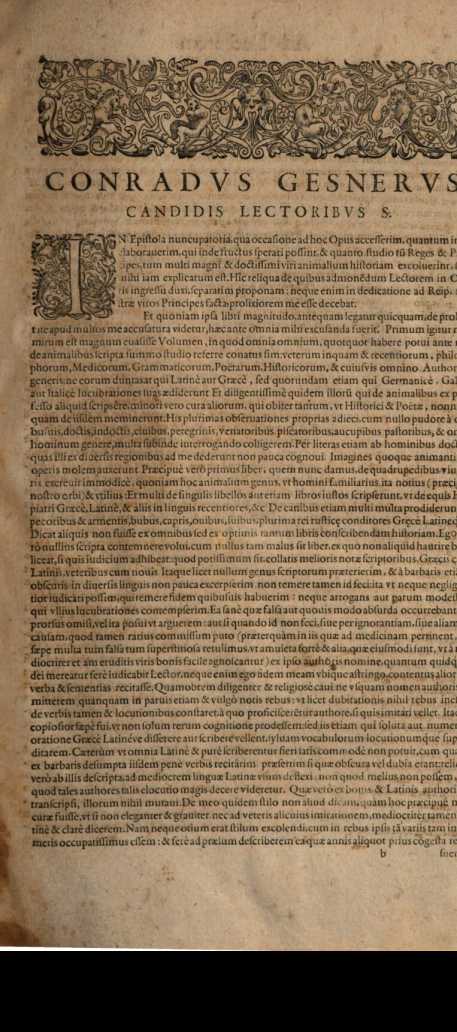 CONRADVS GESNERVS
CANDIDIS LECTORIBVS S.
IN Epistola nuncupatoria, qua occasione ad hoc Opus accesserim, quantum in
laborauerim, qui inde fructus sperari possint, & quanto studio tũ Reges & P
ipes, tum multi magni & doctissimi viri animalium historiam excoluerint,
mihi iam explicatum est. Hîc reliqua de quibus admonēdum Lectorem in O
ris ingressu duxi, separatim proponam: neque enim in dedicatione ad Reip.
stræ viros Principes facta prolixiorem me esse decebat.
Et quoniam ipsa libri magnitudo, antequam legatur quicquam, de prol
tate apud multos me accusatura videtur, hæc ante omnia mihi excusanda fuerit. Primum igitur
mirum est magnum euasisse Volumen, in quod omnia omnium, quotquot habere potui ante
de animalibus scripta summo studio referre conatus sim: veterum inquam & recentiorum, philo
phorum, Medicorum, Grammaticorum, Poëtarum, Historicorum, & cuiusvis omnino Author
generis: nec eorum duntaxat qui Latinè aut Græcè, sed quorundam etiam qui Germanicè, Gal
aut Italicè lucubrationes suas ædiderunt. Et diligentissimè quidem illorũ qui de animalibus ex p
fesso aliquid scripsere, minori vero cura aliorum, qui obiter tantum, vt Historici & Poëtæ, nonn
quam de iisdem meminerunt. His plurimas obseruationes proprias adieci, cum nullo pudore à
busuis, doctis, indoctis, ciuibus, peregrinis, venatoribus, piscatoribus, aucupibus, pastoribus, & o
hominum genere, multa subinde interrogando colligerem. Per literas etiam ab hominibus doc
quas illi ex diuersis regionibus ad me dederunt non pauca cognoui. Imagines quoque animanti
operis molem auxerunt. Præcipuè verò primus liber, quem nunc damus, de quadrupedibus viui
ris excreuit immodicè, quoniam hoc animalium genus, vt homini familiarius, ita notius (præci
nostro orbi) & vtilius: Et multi de singulis libellos aut etiam libros iustos scripserunt, vt de equis H
piatri Græcè, Latinè, & aliis in linguis recentiores, &c. De canibus etiam multi multa prodiderun
pecoribus & armentis, bubus, capris, ouibus, suibus, plurima rei rusticę conditores Gręcè Latineq
Dicat aliquis non fuisse ex omnibus sed ex optimis tantum libris conscribendam historiam. Ego
rò nullius scripta contemnere volui, cum nullus tam malus sit liber, ex quo non aliquid haurire b
liceat, si quis iudicium adhibeat: quod potissimum fit collatis melioris notæ scriptoribus, Græcis
Latinis, veteribus cum nouis. Itaque licet nullum genus scriptorum præterierim, & à barbaris eti
obscuris in diuersis linguis non pauca excerpserim: non temere tamen id feci: ita vt neque neglig
tior iudicari possim, qui temere fidem quibusuis habuerim: neque arrogans aut parum modest
qui vllius lucubrationes contempserim. Ea sanè quæ falsa aut quouis modo absurda occurrebant
prorsus omisi, vel ita posui vt arguerem: aut si quando id non feci, siue per ignorantiam, siue aliam
causam, quod tamen rarius commissum puto (præterquàm in iis quæ ad medicinam pertinent,
sæpe multa tum falsa tum superstitiosa retulimus, vt amuleta fortè & alia, quæ eiusmodi sunt, vt à
diocriter etiam eruditis viris bonis facile agnoscantur) ex ipso authoris nomine, quantum quidq
dei mereatur ferè iudicabit Lector, neque enim ego fidem meam vbique astringo, contentus alior
verba & sententias recitasse. Quamobrem diligenter & religiosè caui ne vsquam nomen authoris
mitterem, quanquam in paruis etiam & vulgò notis rebus: vt licet dubitationis nihil rebus ines
de verbis tamen & locutionibus constaret, à quo proficiscerētur authore, si quis imitari vellet. Ita
copiosior sæpè fui, vt non solum rerum cognitione prodessem: sed iis etiam qui soluta aut numer
oratione Græcè Latinéve disserere aut scribere vellent, syluam vocabulorum locutionumque sup
ditarem. Cæterùm vt omnia Latinè & purè scriberentur fieri satis commodè non potuit, cum qua
ex barbaris desumpta iisdem penè verbis recitârim: præsertim si quæ obscura vel dubia erant: reli
verò ab illis descripta, ad mediocrem linguæ Latinæ vsum deflexi: non quod melius non possem,
quod tales authores talis elocutio magis decere videretur. Quæ verò ex bonis & Latinis authori
transcripsi, illorum nihil mutaui. De meo quidem stilo non aliud dicam, quàm hoc præcipuè m
curæ fuisse, vt si non eleganter & grauiter, nec ad veteris alicuius imitationem, mediocriter tamen
tinè & clarè dicerem. Nam neque otium erat stilum excolendi, cum in rebus ipsis tã variis tam in
meris occupatissimus essem: & ferè ad prælum describerem ea quæ annis aliquot prius cōgesta
b